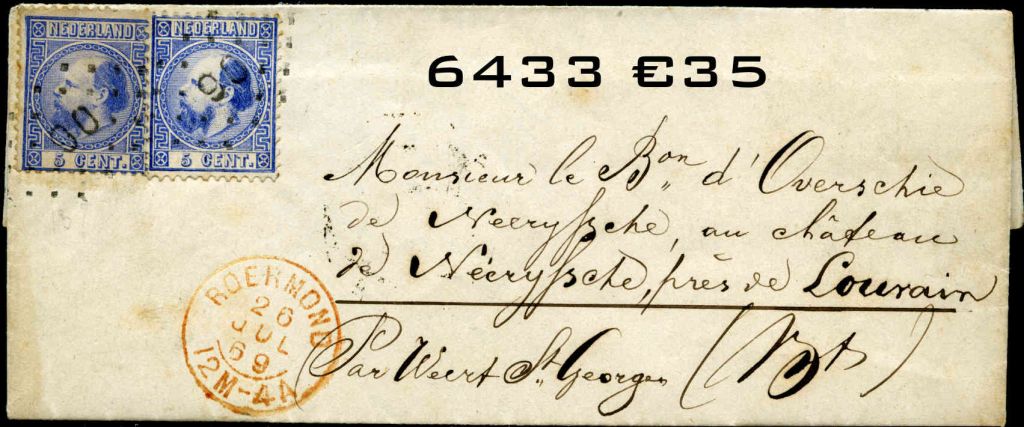 NEDERLAND NEDERLAND
5 CENT. 5 CENT.
6433 €35
Monsieur le Bon d'Overschie
de Néerÿssche, au château
de Néerÿssche, près de Louvain
Par Weert St Georges (Bt)
ROERMOND
26
JUL
69
12M-4A